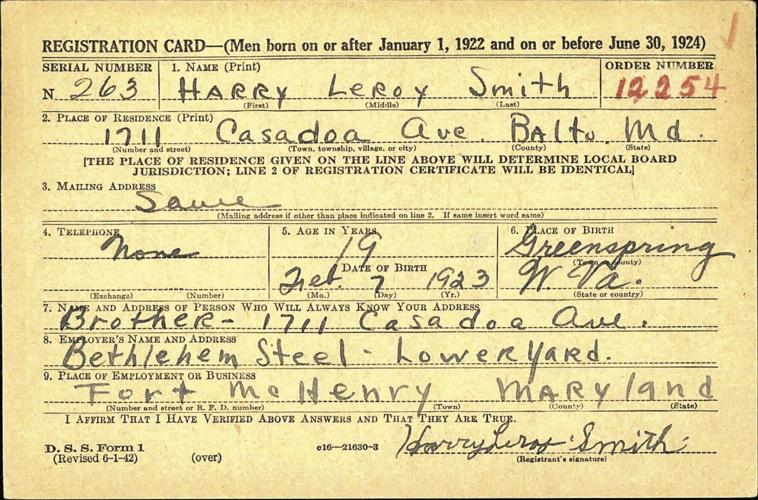 REGISTRATION CARD—(Men born on or after January 1, 1922 and on or before June 30, 1924)
SERIAL NUMBER 1. NAME (Print) ORDER NUMBER
N 263 HARRY LEROY Smith 12254
(First) (Middle) (Last)
2. PLACE OF RESIDENCE (Print)
1711 Casadoa Ave. Balto. Md.
(Number and street) (Town, township, village, or city) (County) (State)
[THE PLACE OF RESIDENCE GIVEN ON THE LINE ABOVE WILL DETERMINE LOCAL BOARD
JURISDICTION; LINE 2 OF REGISTRATION CERTIFICATE WILL BE IDENTICAL]
3. MAILING ADDRESS
Same
(Mailing address if other than place indicated on line 2. If same insert word same)
4. TELEPHONE 5. AGE IN YEARS 6. PLACE OF BIRTH
None 19 Greenspring
DATE OF BIRTH (Town or county)
Feb. 7 1923 W. Va.
(Exchange) (Number) (Mo.) (Day) (Yr.) (State or country)
7. NAME AND ADDRESS OF PERSON WHO WILL ALWAYS KNOW YOUR ADDRESS
Brother- 1711 Casadoa Ave.
8. EMPLOYER'S NAME AND ADDRESS
Bethlehem Steel - Lower Yard.
9. PLACE OF EMPLOYMENT OR BUSINESS
Fort McHenry MARYland
(Number and street or R. F. D. number) (Town) (County) (State)
I AFFIRM THAT I HAVE VERIFIED ABOVE ANSWERS AND THAT THEY ARE TRUE.
D. S. S. Form 1
(Revised 6-1-42) (over) c16—21630-3 Harry Leroy Smith
(Registrant's signature)